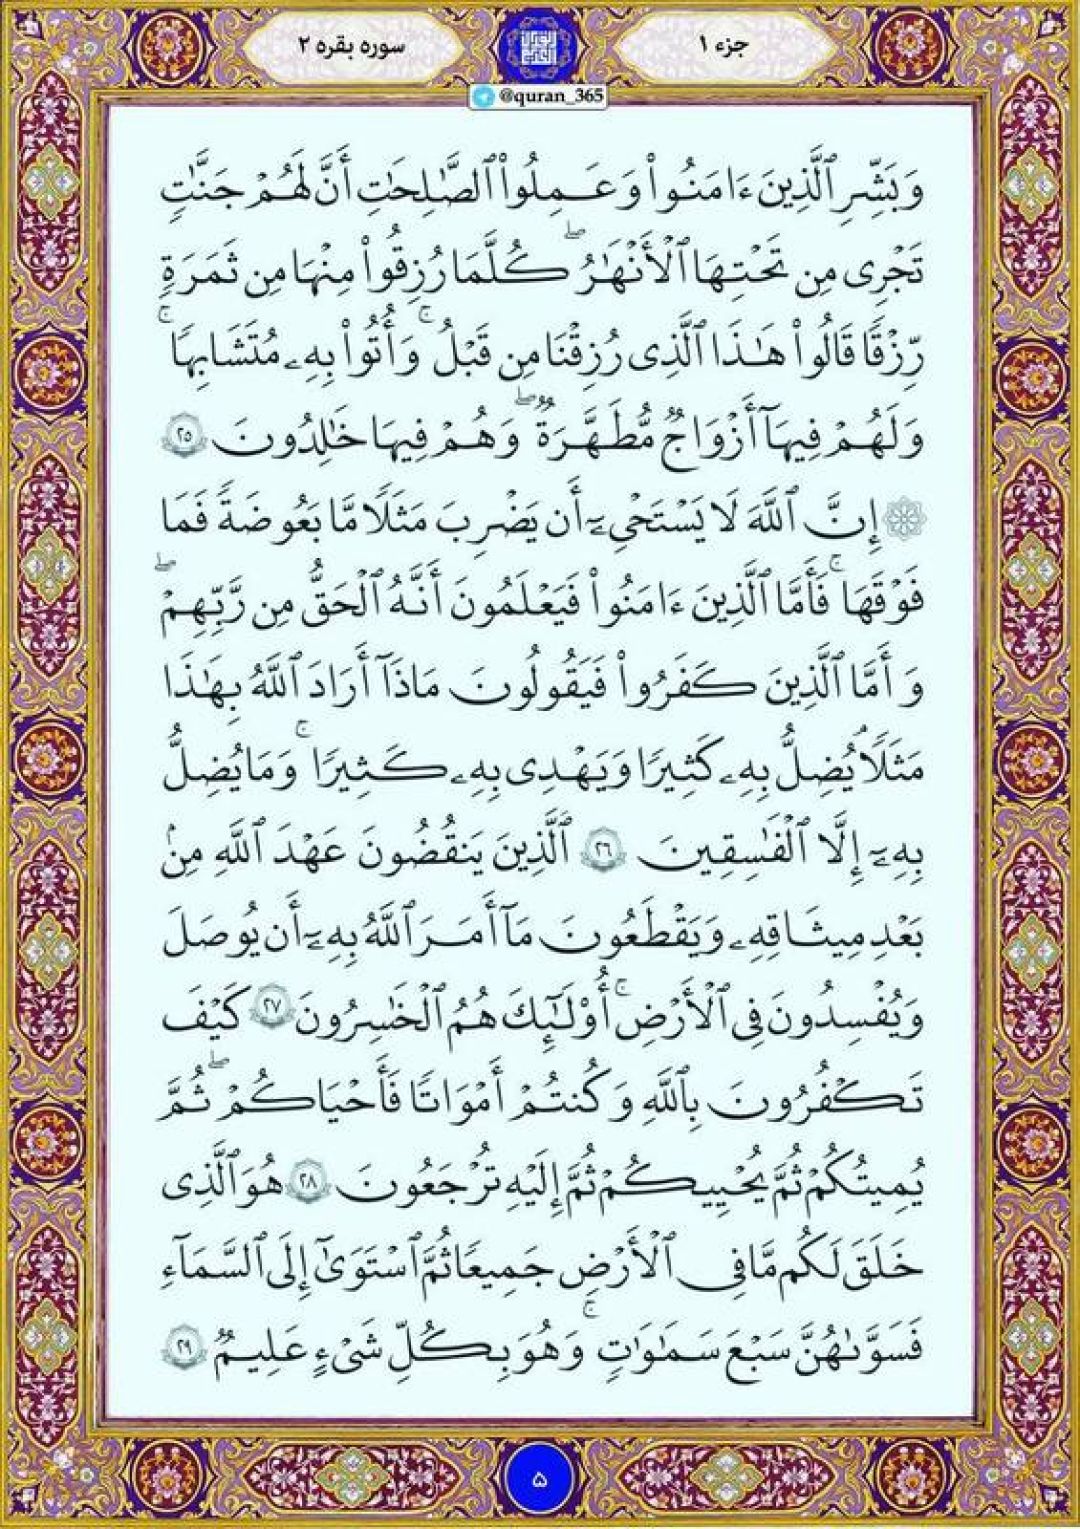 جزء ۱
سوره بقره ۲
@quran_365
وَبَشِّرِ ٱلَّذِينَ ءَامَنُوا۟ وَعَمِلُوا۟ ٱلصَّٰلِحَٰتِ أَنَّ لَهُمْ جَنَّٰتٍ
تَجْرِى مِن تَحْتِهَا ٱلْأَنْهَٰرُ ۖ كُلَّمَا رُزِقُوا۟ مِنْهَا مِن ثَمَرَةٍ
رِّزْقًا قَالُوا۟ هَٰذَا ٱلَّذِى رُزِقْنَا مِن قَبْلُ ۚ وَأُتُوا۟ بِهِۦ مُتَشَٰبِهًا ۚ
وَلَهُمْ فِيهَآ أَزْوَاجٌ مُّطَهَّرَةٌ ۖ وَهُمْ فِيهَا خَٰلِدُونَ ٢٥
۞ إِنَّ ٱللَّهَ لَا يَسْتَحْىِۦٓ أَن يَضْرِبَ مَثَلًا مَّا بَعُوضَةً فَمَا
فَوْقَهَا ۚ فَأَمَّا ٱلَّذِينَ ءَامَنُوا۟ فَيَعْلَمُونَ أَنَّهُ ٱلْحَقُّ مِن رَّبِّهِمْ ۖ
وَأَمَّا ٱلَّذِينَ كَفَرُوا۟ فَيَقُولُونَ مَاذَآ أَرَادَ ٱللَّهُ بِهَٰذَا
مَثَلًا ۘ يُضِلُّ بِهِۦ كَثِيرًا وَيَهْدِى بِهِۦ كَثِيرًا ۚ وَمَا يُضِلُّ
بِهِۦٓ إِلَّا ٱلْفَٰسِقِينَ ٢٦ ٱلَّذِينَ يَنقُضُونَ عَهْدَ ٱللَّهِ مِنۢ
بَعْدِ مِيثَٰقِهِۦ وَيَقْطَعُونَ مَآ أَمَرَ ٱللَّهُ بِهِۦٓ أَن يُوصَلَ
وَيُفْسِدُونَ فِى ٱلْأَرْضِ ۚ أُو۟لَٰٓئِكَ هُمُ ٱلْخَٰسِرُونَ ٢٧ كَيْفَ
تَكْفُرُونَ بِٱللَّهِ وَكُنتُمْ أَمْوَٰتًا فَأَحْيَاكُمْ ۖ ثُمَّ
يُمِيتُكُمْ ثُمَّ يُحْيِيكُمْ ثُمَّ إِلَيْهِ تُرْجَعُونَ ٢٨ هُوَ ٱلَّذِى
خَلَقَ لَكُم مَّا فِى ٱلْأَرْضِ جَمِيعًا ثُمَّ ٱسْتَوَىٰٓ إِلَى ٱلسَّمَآءِ
فَسَوَّىٰهُنَّ سَبْعَ سَمَٰوَٰتٍ ۚ وَهُوَ بِكُلِّ شَىْءٍ عَلِيمٌ ٢٩
۵